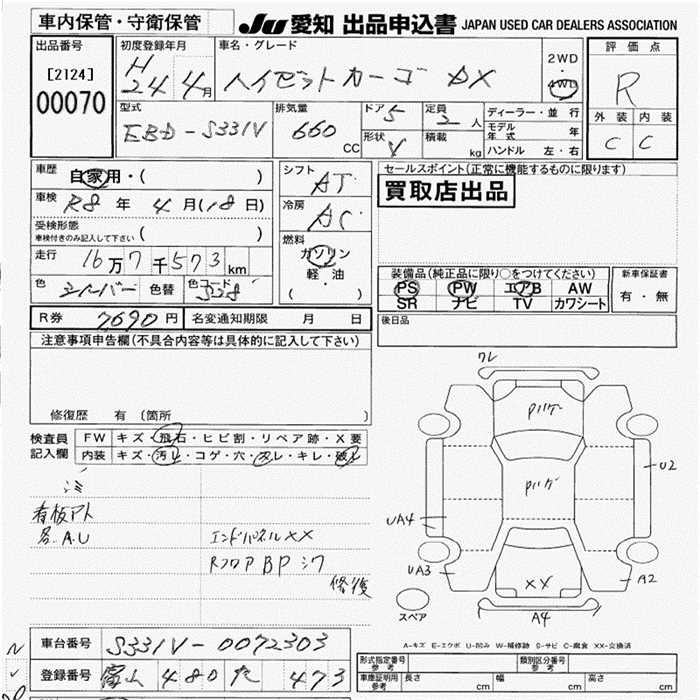 車内保管・守衛保管
JU 愛知 出品申込書 JAPAN USED CAR DEALERS ASSOCIATION
出品番号
[2124]
00070
初度登録年月
H 24 4月
車名・グレード
ハイゼットカーゴ DX
2WD
・
4WD
評価点
R
外装 内装
C C
型式
EBD-S331V
排気量
660 CC
ドア 5
形状 V
定員 2 人
積載 kg
ディーラー・並行
モデル年式 年
ハンドル 左・右
車歴 自家用・( )
車検 R8 年 4 月(18 日)
受検形態
車検付きのみ記入して下さい ( )
走行 16万7千573km
色 シルバー 色替 色コード S28
シフト AT
冷房 AC
燃料
ガソリン
軽・油
( )
セールスポイント(正常に機能するものに限ります)
買取店出品
装備品(純正品に限り○をつけてください)
PS PW エアB AW
SR ナビ TV カワシート
新車保証書
有・無
R券 7690円 名変通知期限 月 日
後日品
注意事項申告欄(不具合内容等は具体的に記入して下さい)
修復歴 有 (箇所 )
検査員記入欄
FW キズ・飛石・ヒビ割・リペア跡・X要
内装 キズ・汚レ・コゲ・穴・スレ・キレ・破レ
看板アト
多.A.U
エンドパネルXX
RフロアBPシワ
修復
ワレ
Pハゲ
Pハゲ
U2
UA4
UA3
A2
XX
A4
スペア
A-キズ E-エクボ U-凹み W-補修跡 S-サビ C-腐食 XX-交換済
車台番号 S331V-0072303
登録番号 富山 480 た 473
型式指定番号 参考
類別区分番号 参考
車庫証明用 参考 長さ cm 幅 cm 高さ cm